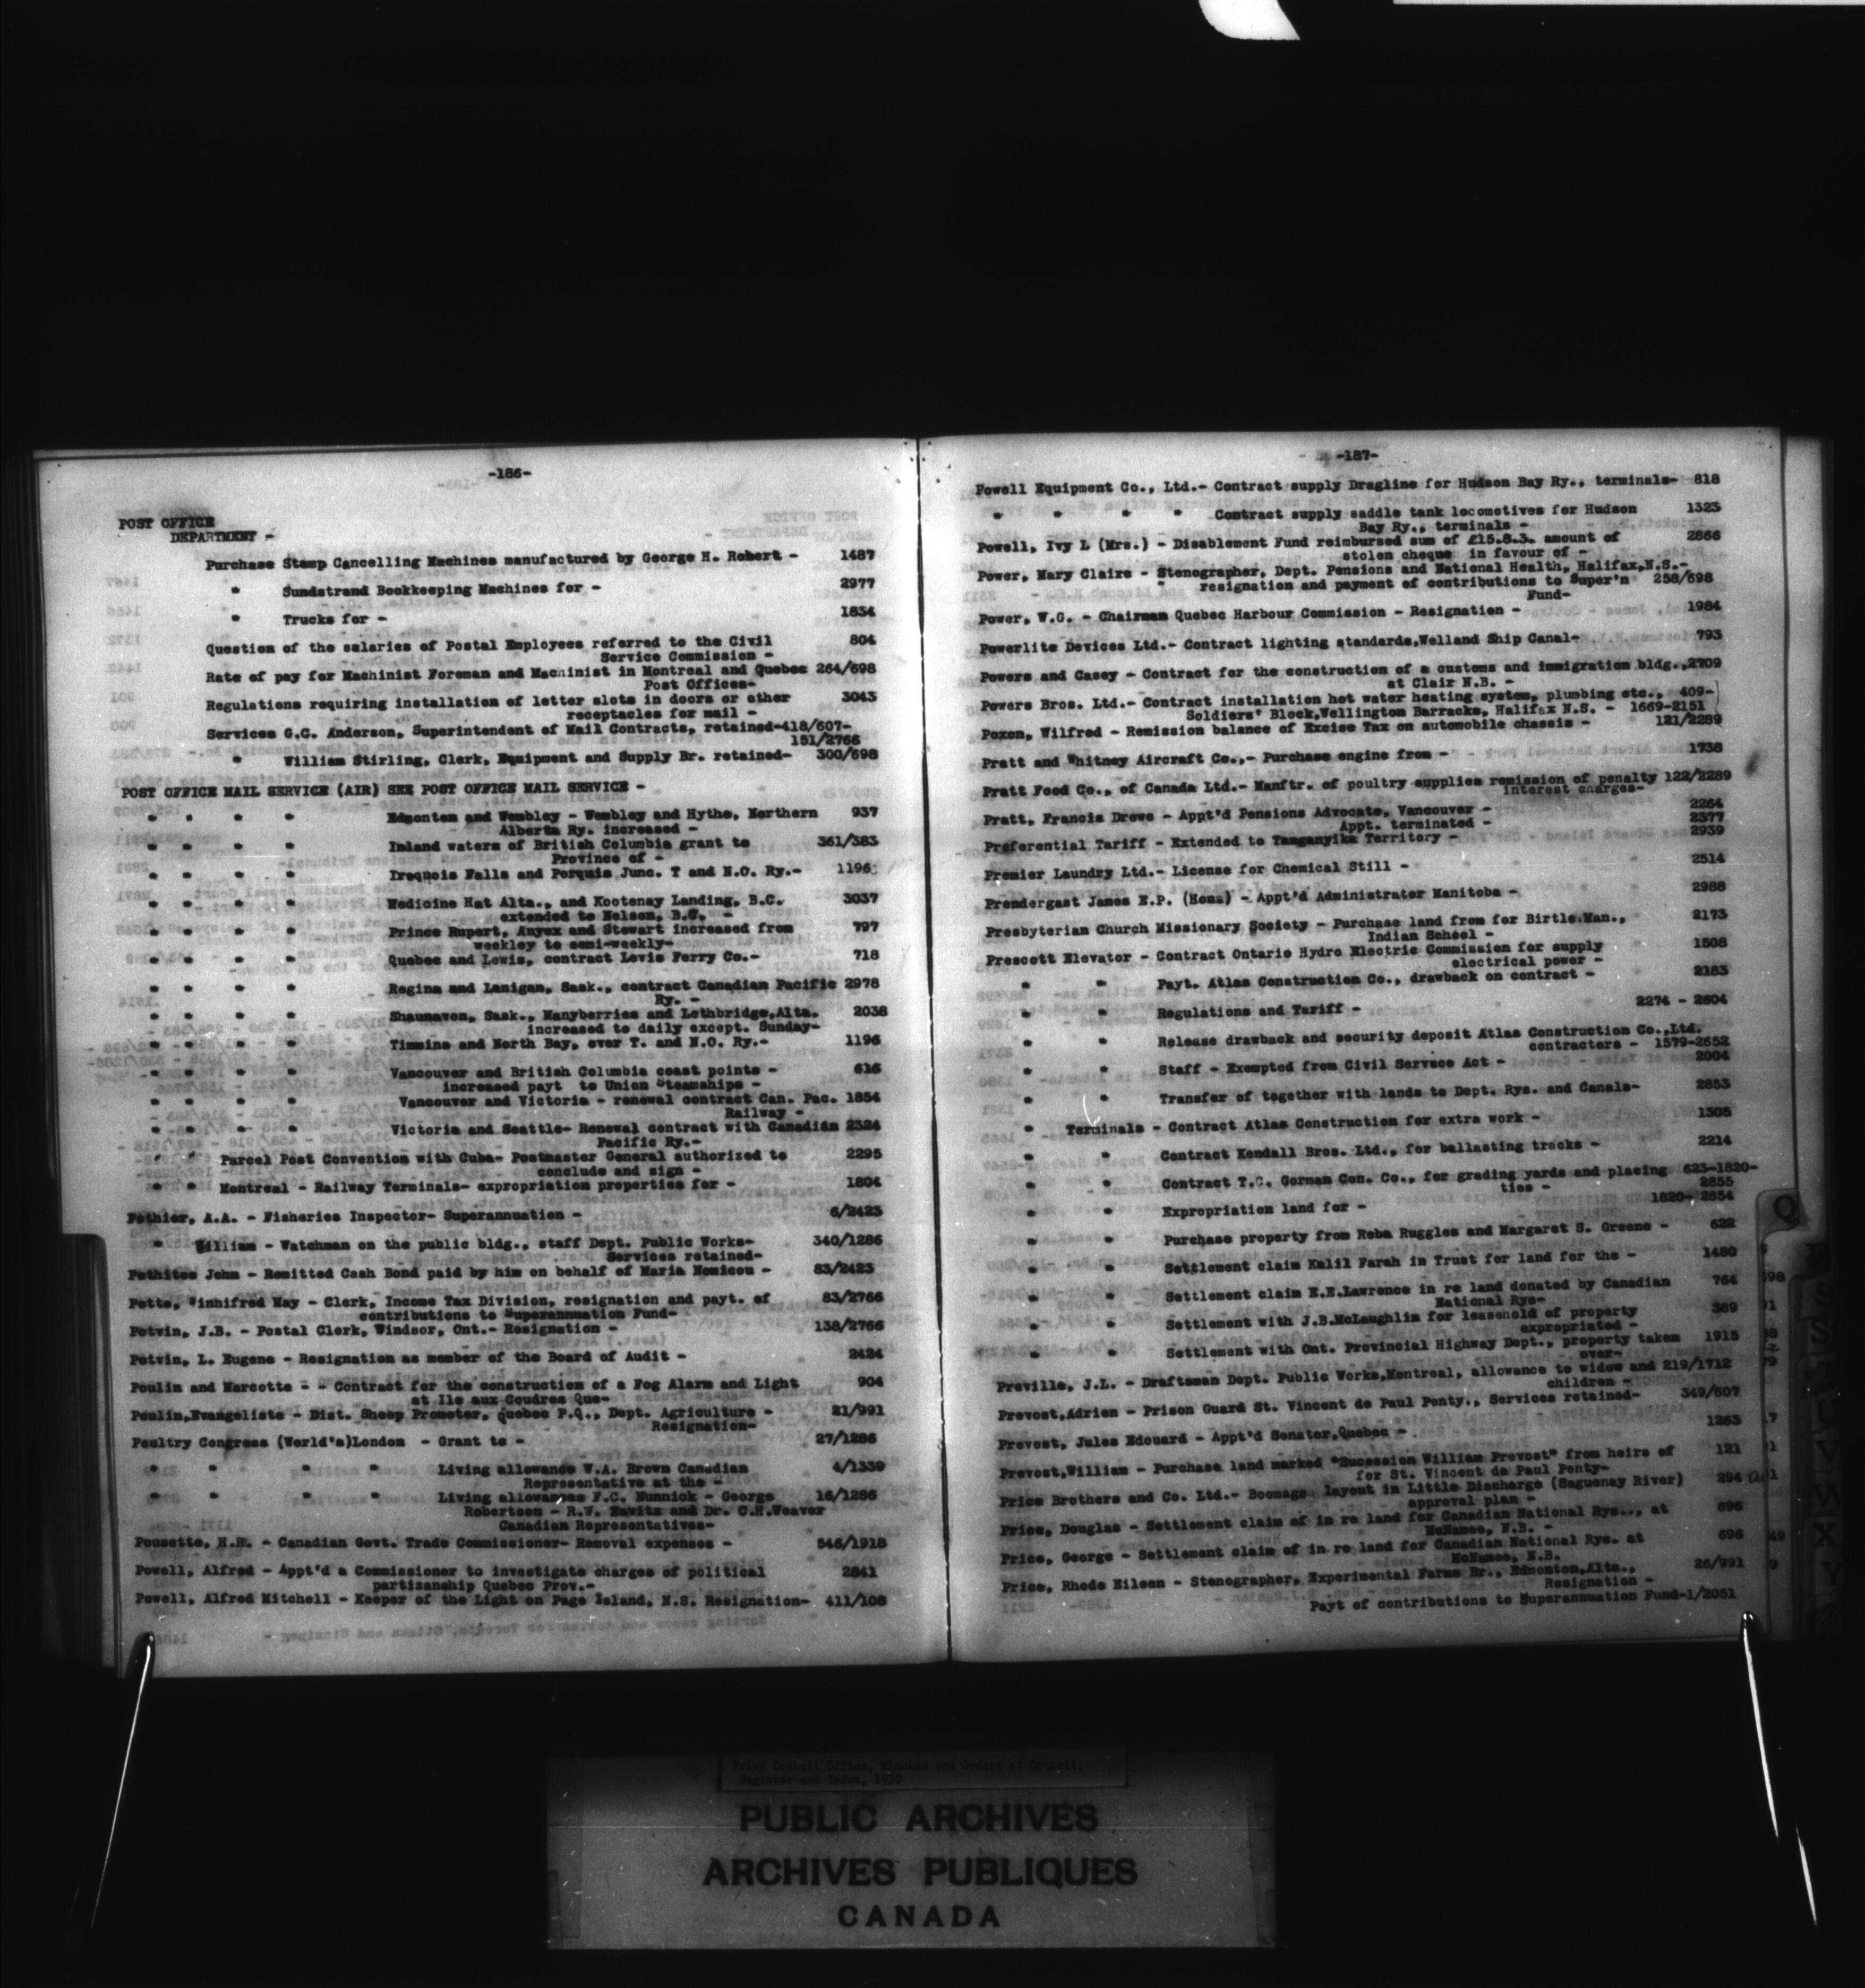 -186-
POST OFFICE
DEPARTMENT -
Purchase Stamp Cancelling Machines manufactured by George H. Robert - 1487
" Sundstrand Bookkeeping Machines for - 2977
" Trucks for - 1834
Question of the salaries of Postal Employees referred to the Civil 804
Service Commission -
Rate of pay for Machinist Foreman and Machinist in Montreal and Quebec 264/698
Post Offices-
Regulations requiring installation of letter slots in doors or other 3043
receptacles for mail -
Services G.C. Anderson, Superintendent of Mail Contracts, retained-418/607-
151/2766
" William Stirling, Clerk, Equipment and Supply Br. retained- 300/698
POST OFFICE MAIL SERVICE (AIR) SEE POST OFFICE MAIL SERVICE -
" " " " Edmonton and Wembley - Wembley and Hythe, Northern 937
Alberta Ry. increased -
" " " " Inland waters of British Columbia grant to 361/383
Province of -
" " " " Iroquois Falls and Porquis Junc. T and N.O. Ry.- 1196
" " " " Medicine Hat Alta., and Kootenay Landing, B.C. 3037
extended to Nelson, B.C. -
" " " " Prince Rupert, Anyox and Stewart increased from 797
weekley to semi-weekly-
" " " " Quebec and Lewis, contract Levis Ferry Co.- 718
" " " " Regina and Lanigan, Sask., contract Canadian Pacific 2978
Ry. -
" " " " Shaunavon, Sask., Manyberries and Lethbridge,Alta. 2038
increased to daily except. Sunday-
" " " " Timmins and North Bay, over T. and N.O. Ry.- 1196
" " " " Vancouver and British Columbia coast points - 616
increased payt to Union Steamships -
" " " " Vancouver and Victoria - renewal contract Can. Pac. 1854
Railway -
" " " " Victoria and Seattle- Renewal contract with Canadian 2324
Pacific Ry.-
" " Parcel Post Convention with Cuba- Postmaster General authorized to 2295
conclude and sign -
" " Montreal - Railway Terminals- expropriation properties for - 1804
Pothier, A.A. - Fisheries Inspector- Superannuation - 6/2423
" William - Watchman on the public bldg., staff Dept. Public Works- 340/1286
Services retained-
Pothitos John - Remitted Cash Bond paid by him on behalf of Maria Nomicou - 83/2423
Potts, Winnifred May - Clerk, Income Tax Division, resignation and payt. of 83/2766
contributions to Superannuation Fund-
Potvin, J.B. - Postal Clerk, Windsor, Ont.- Resignation - 138/2766
Potvin, L. Eugene - Resignation as member of the Board of Audit - 2424
Poulin and Marcotte - - Contract for the construction of a Fog Alarm and Light 904
at Ile aux Coudres Que-
Poulin,Evangeliste - Dist. Sheep Promoter, Quebec P.Q., Dept. Agriculture - 21/991
Resignation-
Poultry Congress (World's)London - Grant to - 27/1286
" " " " Living allowance W.A. Brown Canadian 4/1339
Representative at the -
" " " " Living allowances F.C. Nunnick - George 16/1286
Robertson - R.V. Zavitz and Dr. C.H.Weaver
Canadian Representatives-
Poussette, H.R. - Canadian Govt. Trade Commissioner- Removal expenses - 546/1918
Powell, Alfred - Appt'd a Commissioner to investigate charges of political 2841
partizanship Quebec Prov.-
Powell, Alfred Mitchell - Keeper of the Light on Page Island, N.S. Resignation- 411/108
-187-
Powell Equipment Co., Ltd.- Contract supply Dragline for Hudson Bay Ry., terminals- 818
" " " " Contract supply saddle tank locomotives for Hudson 1323
Bay Ry., terminals -
Powell, Ivy L (Mrs.) - Disablement Fund reimbursed sum of £15.8.3. amount of 2866
stolen cheque in favour of -
Power, Mary Claire - Stenographer, Dept. Pensions and National Health, Halifax,N.S.-
resignation and payment of contributions to Super'n 258/698
Fund-
Power, W.G. - Chairman Quebec Harbour Commission - Resignation - 1984
Powerlite Devices Ltd.- Contract lighting standards,Welland Ship Canal- 793
Powers and Casey - Contract for the construction of a customs and immigration bldg.,2709
at Clair N.B. -
Powers Bros. Ltd.- Contract installation hot water heating system, plumbing etc., 409-
Soldiers' Block,Wellington Barracks, Halifax N.S. - 1669-2151
Poxon, Wilfred - Remission balance of Excise Tax on automobile chassis - 121/2289
Pratt and Whitney Aircraft Co.,- Purchase engine from - 1738
Pratt Food Co., of Canada Ltd.- Manftr. of poultry supplies remission of penalty 122/2289
interest charges-
Pratt, Francis Drewe - Appt'd Pensions Advocate, Vancouver - 2264
Appt. terminated - 2377
Preferential Tariff - Extended to Tanganyika Territory - 2939
Premier Laundry Ltd.- License for Chemical Still - 2514
Prendergast James E.P. (Hons) - Appt'd Administrator Manitoba - 2988
Presbyterian Church Missionary Society - Purchase land from for Birtle.Man., 2173
Indian School -
Prescott Elevator - Contract Ontario Hydro Electric Commission for supply 1508
electrical power -
" " Payt. Atlas Construction Co., drawback on contract - 2183
" " Regulations and Tariff - 2274 - 2604
" " Release drawback and security deposit Atlas Construction Co.,Ltd.
contractors - 1579-2652
" " Staff - Exempted from Civil Servace Act - 2004
" " Transfer of together with lands to Dept. Rys. and Canals- 2853
" Terminals - Contract Atlas Construction for extra work - 1305
" " Contract Kendall Bros. Ltd., for ballasting tracks - 2214
" " Contract T.C. Gorman Con. Co., for grading yards and placing 623-1820-
ties - 2855
" " Expropriation land for - 1820- 2854
" " Purchase property from Reba Ruggles and Margaret S. Greene - 622
" " Settlement claim Kalil Farah in Trust for land for the - 1480
" " Settlement claim E.E.Lawrence in re land donated by Canadian 764
National Rys-
" " Settlement with J.B.McLaughlin for leasehold of property 389
expropriated -
" " Settlement with Ont. Provincial Highway Dept., property taken 1915
over-
Preville, J.L. - Draftsman Dept. Public Works,Montreal, allowance to widow and 219/1712
children -
Prevost,Adrien - Prison Guard St. Vincent de Paul Penty., Services retained- 349/607
Prevost, Jules Edouard - Appt'd Senator,Quebec - 1263
Prevost,William - Purchase land marked "Sucession William Prevost" from heirs of 121
for St. Vincent de Paul Penty-
Price Brothers and Co. Ltd.- Boomage layout in Little Discharge (Saguenay River) 294
approval plan -
Price, Douglas - Settlement claim of in re land for Canadian National Rys.., at 696
McNamee, N.B. -
Price, George - Settlement claim of in re land for Canadian National Rys. at 696
McNamee, N.B.
Price, Rhode Eileen - Stenographer, Experimental Farms Br., Edmonton,Alta., 26/991
Resignation -
Payt of contributions to Superannuation Fund-1/2051
Q
Privy Council Office, Minutes and Orders of Council,
Register and Index, 1930
PUBLIC ARCHIVES
ARCHIVES PUBLIQUES
CANADA